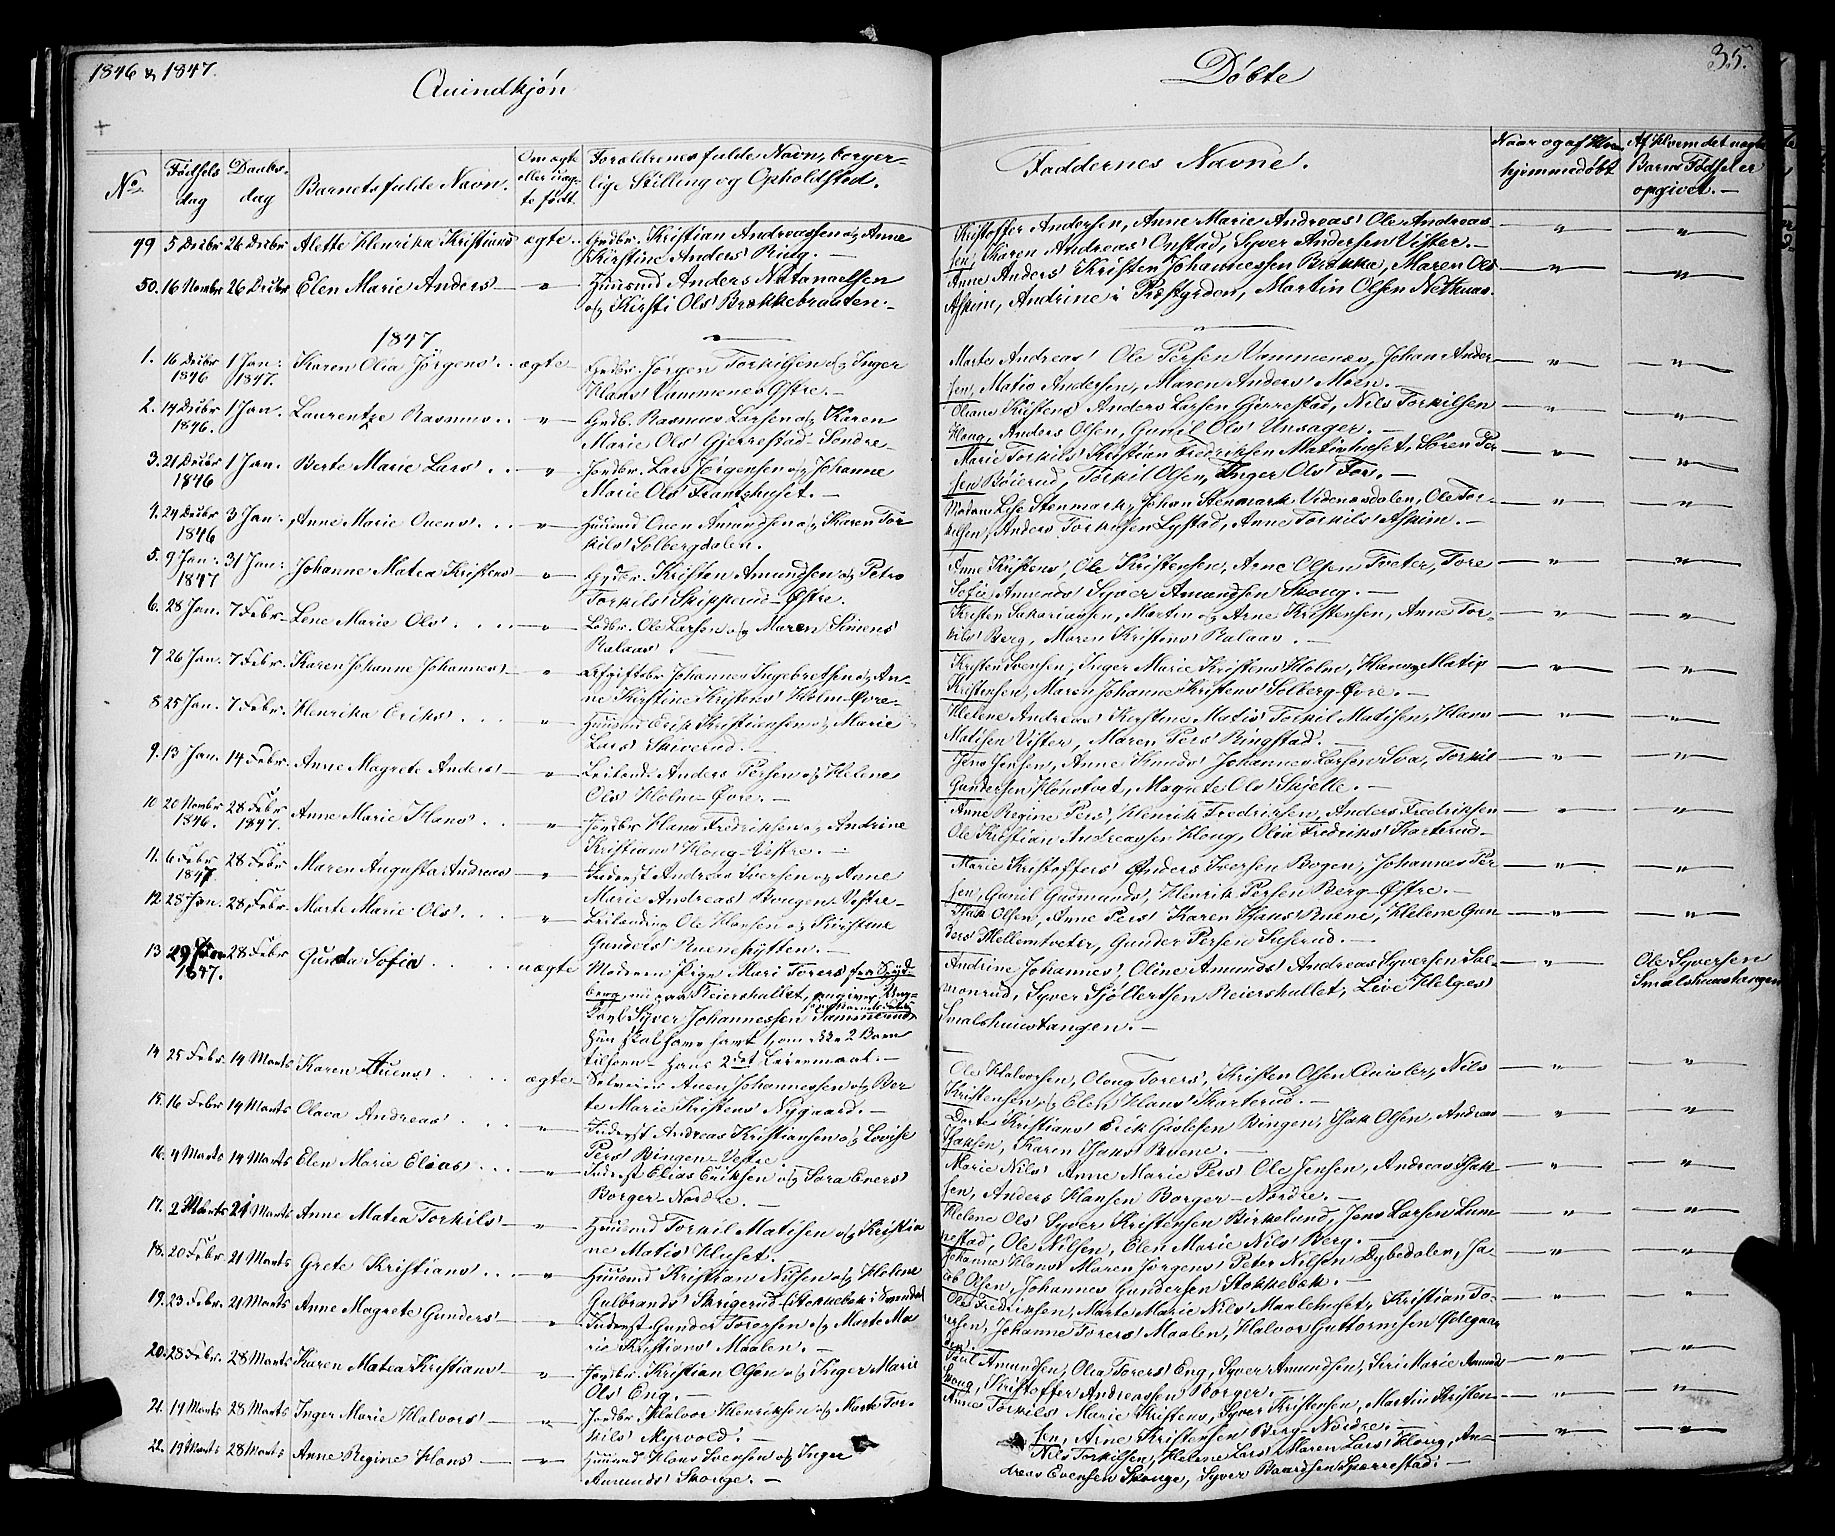 1846 & 1847.
Qvindkjön
Döbte
35.
No
Födsels dag
Daabs-dag
Barnets fulde Navn.
Om ægte eller uæg-te födt.
Forældrenes fulde Navn, borger-
lige Stilling og Opholdsted.
Faddernes Navne.
Naar og af Hvem hjemmedöbt
Barnets Födsel er opgivet.
49 5 Decbr 26 Decbr Alette Henrika Kristians ægte Grdbr. Kristian Andreassen og Anne
Kirstine Anders' Ring.
Kristoffer Andersen, Anne Marie Andreas' Ole Andreas-
sen, Karen Andreas' Onstad, Syver Andersen Vister.
50. 16 Novbr 26 Decbr Elen Marie Anders — " — Huusmd Anders Natanaelsen
og Kirsti Ols' Brekkebraaten.
Anne Anders' Kristen Johannessen Brække, Maren Ols'
Askim, Andrine i Præstgrden, Martin Olsen
1847.
1. 16 Decbr 1846 1 Jan: 1847. Karen Olia Jörgens' ægte Grdbr. Jörgen Torkilsen og Inger
Hans' Vammenes Östre.
Marte Andreas' Ole Persen Vammenæs, Johan Ander-
sen, Matis Andersen, Maren Anders' Moen.
2. 14 Decbr 1846. 1 Jan. Laurentze Rasmus — " — Grdb. Rasmus Larsen og Karen
Marie Ols' Gjerrestad Söndre
Kristens' Anders Larsen Gjerrestad, Nils Torkilsen
Houg, Anders Olsen, Gunil Ols' Unsager.
3. 21 Decbr 1846 1 Jan. Berte Marie Lars' — " — Jordbr. Lars Jörgensen og Johanne
Marie Ols' Frantzhuset.
Marie Torkils' Kristian Fredriksen Matishuset, Sören Per-
sen Böierud, Torkil Olsen, Inger Ols' Tor.
4. 24 Decbr 1846 3 Jan. Anne Marie Ouens' — " — Huusmd Ouen Amundsen og Karen Tor-
kils' Solbergdalen.
Madame Lise Stenmark, Johan Stenmark Vidnæsdalen, Ole Tor-
kilsen, Anders Torkilsen Lystad, Anne Torkils' Askim.
5. 9 Jan: 1847 31 Jan: Johanne Matea Kristens — " — Grdbr. Kristen Amundsen og Petro
Torkils' Skipperud-Östre.
Anne Kristens', Ole Kristensen, Arne Olsen Tveter, Tore
Sofie Amunds' Syver Amundsen Skoug.
6. 28 Jan. 7 Febr Lene Marie Ols' — " — Ole Larsen og Maren Simens'
Ralaas.
Kristen Sakariassen, Martin og Arne Kristensen, Anne Tor-
kils' Berg, Maren Kristens' Ralaas.
7 26 Jan. 7 Febr. Karen Johanne Johannes' — " — Johannes Ingebretsen og An-
ne Kirstine Kristens' Holm-Övre.
Kristen Svensen, Inger Marie Kristens' Holm, Hans Matis
Kristensen, Maren Johanne Kristens' Solberg-Övre.
8 25 Jan. 7 Febr. Henrika Eriks' — " — Huusmd Erik Kristiansen og Marie
Lars' Skiverud.
Helene Andreas' Matis' Torkil Matisen, Hans
Matisen Vister, Maren Pers' Ringstad.
9. 13 Jan. 14 Febr. Anne Magrete Anders' — " — Leilænd. Anders Persen og Helene
Ols' Holm-Övre.
Jens Jensen, Anne Knuds' Johannes Larsen Sva, Torkil
Gundersen, Magrete Ols' Skjelle.
10. 20 Novbr 1846. 28 Febr 1847. Anne Marie Hans — " — Jordbr. Hans Fredriksen og Andrine
Kristians' Houg-Vestre.
Anne Regine Pers', Henrik Fredriksen, Anders Fredriksen
Ole Kristian Andreassen Houg, Olia Fredriks' Karterud
11. 6 Febr 1847 28 Febr. Maren Augusta Andreas — " — Inderst Andreas Iversen og Anne
Marie Andreas' Bougen-Vestre
Marie Kristoffers' Anders Iversen Bogen, Johannes Per-
sen, Gunil Gudmunds', Henrik Persen Berg-Östre.
12. 28 Jan. 28. Febr Marte Marie Ols' — " — Leilænding Ole Hansen og Kirstine
Gunders' Ruenehytten.
Isak Olsen, Anne Pers' Karen Isaks' Ruene, Helene Gun-
ders' Mellemtveter, Gunder Persen Suserud.
13 29 1847. 28 Febr Gunda Sofia uægte Moderen Pige Mari Torers fra Spyd-
berg, nu paa Reiershullet, angiver Ung-
karl Syver Johannessen
Hun skal have havt 1, om ikke 2 Börn
tilforn — Hans 2det Leiermaal.
Andrine Johannes' Oline Amunds' Andreas Syversen Sal-
monrud, Syver Sjöllertsen Reiershullet, Live Helges'
Smalshuustangen.
Ole Syversen
Smalshuustangen
14 25 Febr. 14 Marts Karen Auens' ægte Selveier Auen Johannessen og Ber-
te Marie Kristens' Nygaard.
Ole Halvorsen, Oloug Torers', Kristen Olsen, Nils
Kristensen, og Elen Hans' Karterud.
15. 16 Febr 14 Marts Olava Andreas' — " — Inderst Andreas Kristiansen og Lovise
Pers' Bingen-Vestre
Dorte Kristians' Erik Gislesen Bingen, Isak Olsen, Andreas
Isaksen, Karen Isaks' Ruene.
16. 4 Marts 14 Marts Elen Marie Elias' — " — Inderst Elias Eriksen og Sara Evers'
Borger-Nordre.
Marie Nils' Anne Marie Pers' Ole Jensen, Andreas Isak-
sen, Anders Hansen Borger-Nordre.
17. 2 Marts 21 Marts Anne Matea Torkils' — " — Huusmd Torkil Matisen og Kristia-
ne Matis' Huset.
Helene Ols' Syver Kristensen Birkelund, Jens Larsen Lum-
nestad, Ole Nilsen, Elen Marie Nils' Berg.
18. 20 Febr. 21 Marts Grete Kristians' — " — Huusmd Kristian Nilsen og Helene
Gulbrands' Skrigerud (Stokkebæk i Trömborg)
Johanne Hans' Maren Jörgens' Peter Nilsen Dybedalen, Ja-
cob Olsen, Johannes Gundersen Stokkebæk.
19. 23 Febr. 21 Marts Anne Magrete Gunders' — " — Inderst Gunder Torersen og Marte Ma-
rie Kristians' Maalen.
Ole Fredriksen, Marte Marie Nils' Maalehuset, Kristian To-
rersen, Johanne Torers' Maalen, Halvor Guttormsen Ödegaar-
den.
20. 28 Febr. 28 Marts Karen Matea Kristians' — " — Jordbr. Kristian Olsen og Inger Marie
Ols' Eng.
Paul Amundsen, Olea Torers' Eng, Syver Amundsen, Siri Marie Amunds'
Skoug, Kristoffer Andreassen Borger.
21. 19 Marts 28 Marts Inger Marie Halvors' — " — Jordbr Halvor Henriksen og Marte Tor-
kils' Myrvold.
Anne Torkils' Marie Kristens', Syver Kristensen, Martin Kristen-
sen, Arne Kristensen Berg-Nordre.
22. 19 Marts 28 Marts Anne Regine Hans' — " — Huusmd Hans Svensen og Inger
Amunds' Skouge.
Nils Torkilsen, Helene Lars' Maren Lars' Houg, An-
dreas Evensen Skouge, Syver Baardsen Sparrestad.